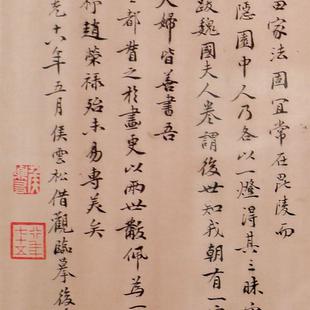 田家法固宜常在毘陵而
隱園中人乃各以一燈得其三昧
跋魏國夫人卷謂後世知我朝有一
夫婦皆善書吾
都費之於畫更以兩世散佩為一
趙榮祿殆未易專美矣
光十六年五月侯雲松借觀臨摹後